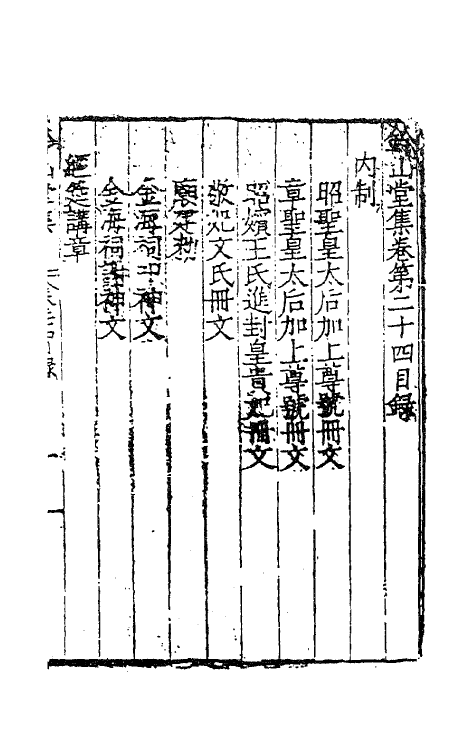 鈐山堂集卷第二十四目錄
內制
昭聖皇太后加上尊號冊文
章聖皇太后加上尊號冊文
昭嬪王氏進封皇貴妃冊文
敬妃文氏冊文
金海祠 神文
金海祠謝神文
經筵講章